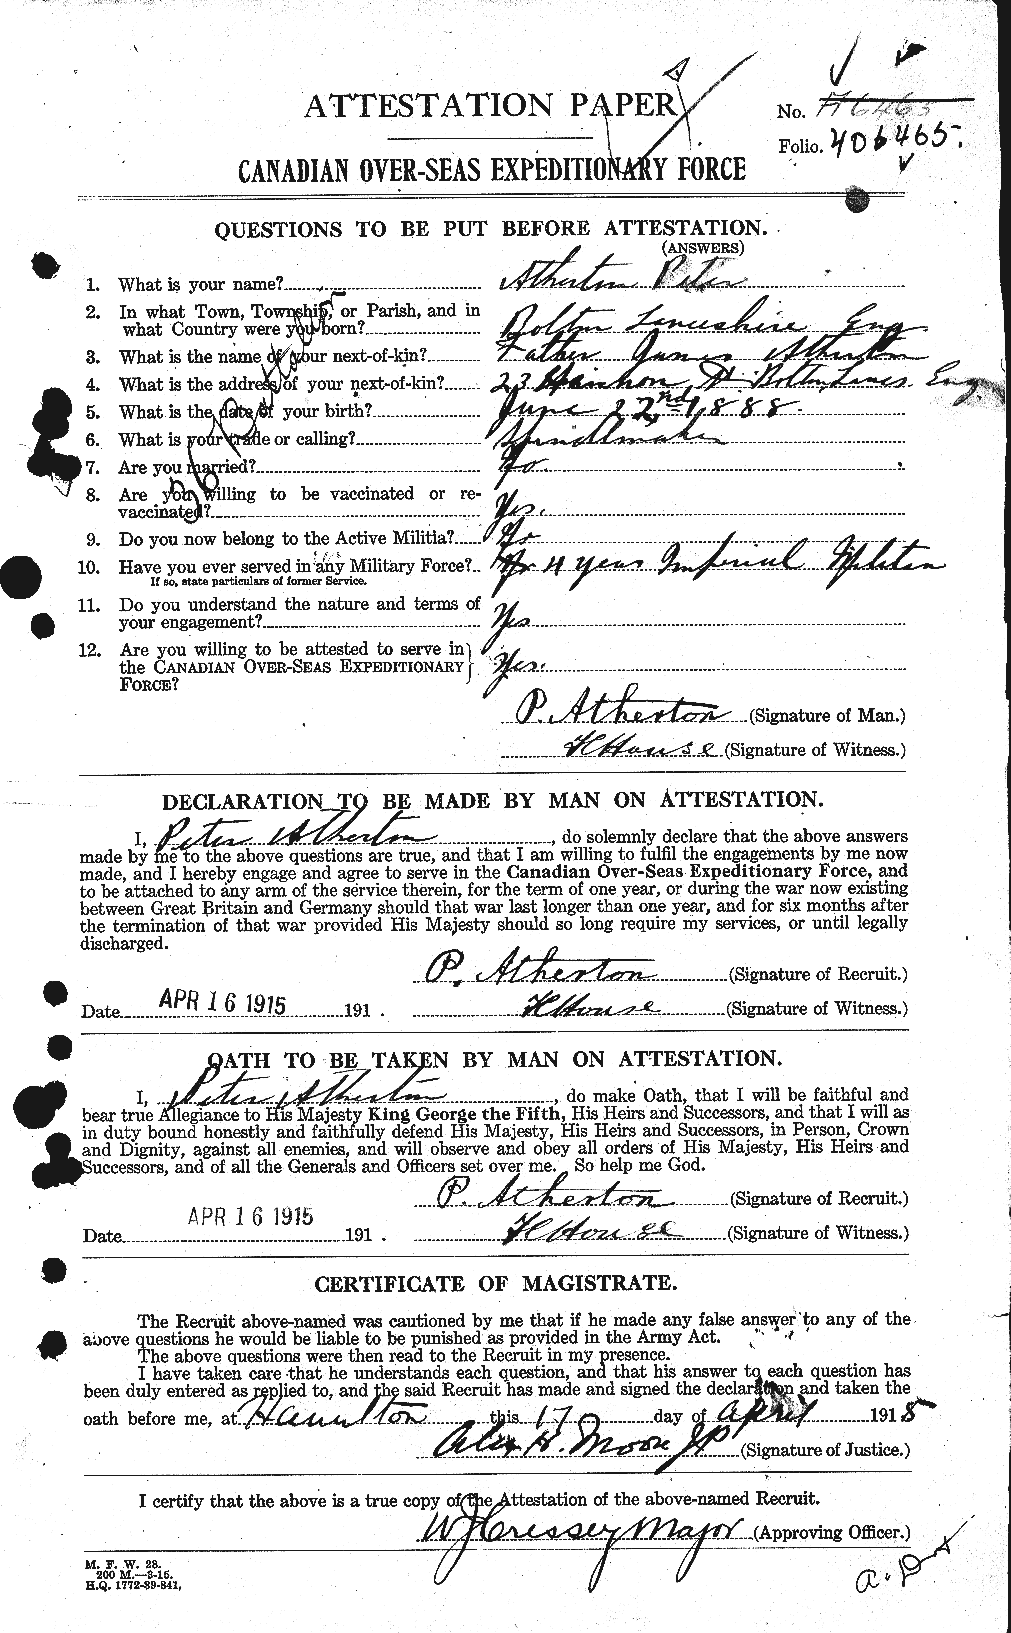 ATTESTATION PAPER
No. A6465
Folio. 406465.
CANADIAN OVER-SEAS EXPEDITIONARY FORCE
QUESTIONS TO BE PUT BEFORE ATTESTATION.
(ANSWERS)
1. What is your name? Atherton Peter
2. In what Town, Township, or Parish, and in
what Country were you born? Bolton Lancashire Eng
3. What is the name of your next-of-kin? Father James Atherton
4. What is the address of your next-of-kin? 23 St. Bolton, Lancs Eng
5. What is the date of your birth? June 22nd, 1888.
6. What is your trade or calling? Spindlemaker
7. Are you married? No.
8. Are you willing to be vaccinated or re-
vaccinated? Yes.
9. Do you now belong to the Active Militia? No
10. Have you ever served in any Military Force? No 4 years Imperial Militia
If so, state particulars of former Service.
11. Do you understand the nature and terms of
your engagement? Yes
12. Are you willing to be attested to serve in
the CANADIAN OVER-SEAS EXPEDITIONARY
FORCE? Yes.
36 Battalion
P. Atherton (Signature of Man.)
H House (Signature of Witness.)
DECLARATION TO BE MADE BY MAN ON ATTESTATION.
I, Peter Atherton, do solemnly declare that the above answers
made by me to the above questions are true, and that I am willing to fulfil the engagements by me now
made, and I hereby engage and agree to serve in the Canadian Over-Seas Expeditionary Force, and
to be attached to any arm of the service therein, for the term of one year, or during the war now existing
between Great Britain and Germany should that war last longer than one year, and for six months after
the termination of that war provided His Majesty should so long require my services, or until legally
discharged.
P. Atherton (Signature of Recruit.)
Date APR 16 1915 191 . H House (Signature of Witness.)
OATH TO BE TAKEN BY MAN ON ATTESTATION.
I, Peter Atherton, do make Oath, that I will be faithful and
bear true Allegiance to His Majesty King George the Fifth, His Heirs and Successors, and that I will as
in duty bound honestly and faithfully defend His Majesty, His Heirs and Successors, in Person, Crown
and Dignity, against all enemies, and will observe and obey all orders of His Majesty, His Heirs and
Successors, and of all the Generals and Officers set over me. So help me God.
P. Atherton (Signature of Recruit.)
Date APR 16 1915 191 . H House (Signature of Witness.)
CERTIFICATE OF MAGISTRATE.
The Recruit above-named was cautioned by me that if he made any false answer to any of the
above questions he would be liable to be punished as provided in the Army Act.
The above questions were then read to the Recruit in my presence.
I have taken care that he understands each question, and that his answer to each question has
been duly entered as replied to, and the said Recruit has made and signed the declaration and taken the
oath before me, at Hamilton this 17 day of April 1915
Alex H. Moore JP (Signature of Justice.)
I certify that the above is a true copy of the Attestation of the above-named Recruit.
W J Cressey Major (Approving Officer.)
M. F. W. 23.
200 M.—3-15.
H.Q. 1772-39-841,